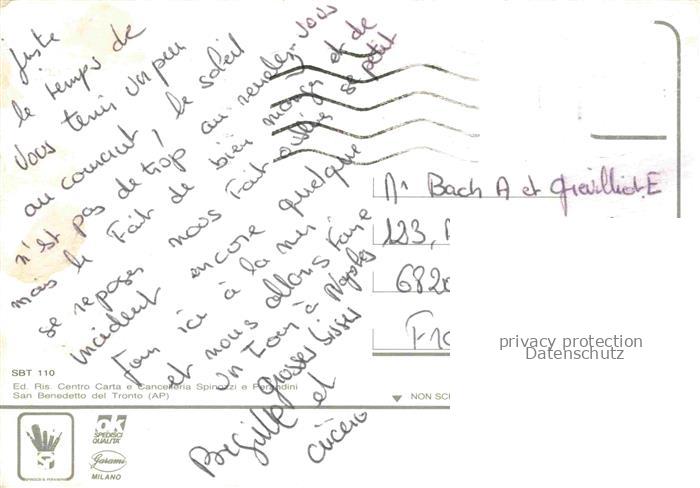 Juste
le temps de
vous tenir un peu
au courant ! le soleil
n'est pas de trop au rendez-vous
mais le Fait de bien manger et de
se reposer nous Fait oublier se petit
incident encore quelque
Jour ici à la mer
et nous allons Faire
un Tour à Naples
grosses bisses
Brigitte et
Mr Bach A et Grevilliot.E
123,
682
Fra
privacy protection
Datenschutz
SBT 110
Ed. Ris. Centro Carta e Cancelleria Spinozzi e Perandini
San Benedetto del Tronto (AP)
NON SC
OK
SPEDISCI
QUALITA'
Garami
MILANO